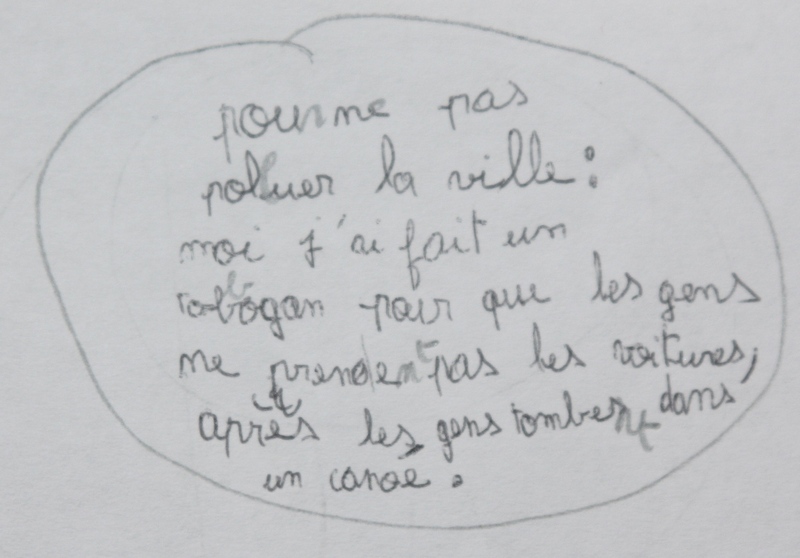 pour ne pas
poluer la ville :
moi j'ai fait un
tobogan pour que les gens
ne prendent pas les voitures,
après les gens tombent dans
un canoe.